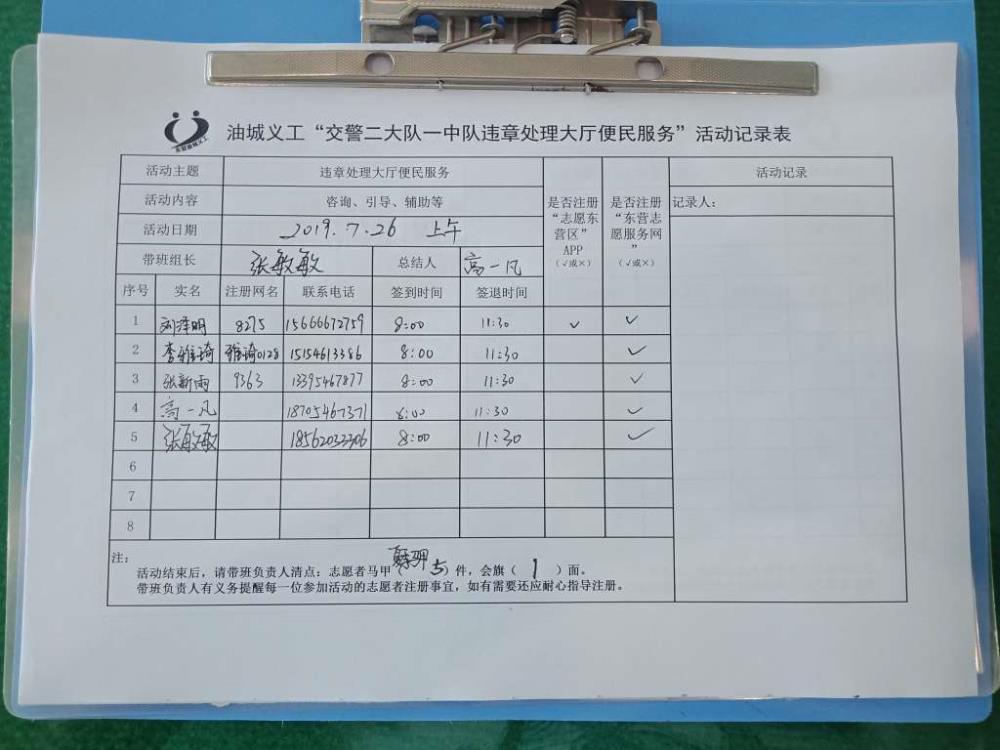 油城义工“交警二大队一中队违章处理大厅便民服务”活动记录表
活动主题 违章处理大厅便民服务 活动记录
活动内容 咨询、引导、辅助等 是否注册“志愿东营区”APP（√或×） 是否注册“东营志愿服务网”（√或×） 记录人：
活动日期 2019.7.26 上午
带班组长 张敏敏 总结人 高一凡
序号 实名 注册网名 联系电话 签到时间 签退时间
1 刘泽明 8275 15666672759 8:00 11:30 √ √
2 李雅琦 雅琦0128 15154613386 8:00 11:30 √
3 张新雨 9363 13395467877 8:00 11:30 √
4 高一凡 18705467371 8:00 11:30 √
5 张敏敏 18562033306 8:00 11:30 √
6
7
8
注：
活动结束后，请带班负责人清点：志愿者马甲（5）件，会旗（1）面。
带班负责人有义务提醒每一位参加活动的志愿者注册事宜，如有需要还应耐心指导注册。